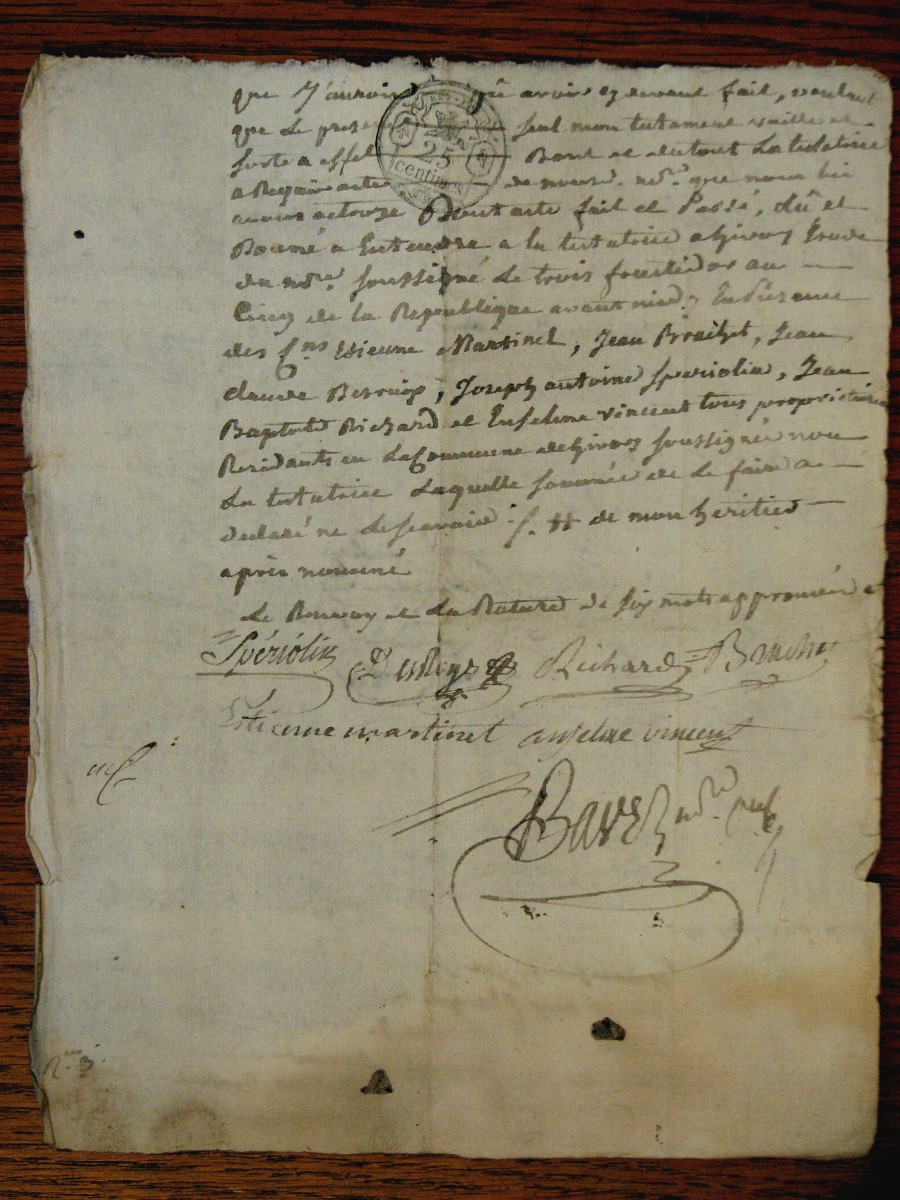 que J'aurois avoir cy devant fait, voulant
que le present seul mon testament vaille et
sorte a effet Dont et du tout La testatrice
a Requis acte de nous d. nore. que nous lui
avons actroyé Dont acte fait et Passé, Lû et
Donné a Entendre a la testatrice a Givors Etude
du nore. soussigné Le trois fructidor an
Cinq de la Republique avant midy En presence
des Cns Etienne Martinet, Jean Brachet, Jean
claude, Joseph antoine Speriolin, Jean
Baptiste Richard et Enselme vincent tous proprietaires
Residants en La Commune de Givors soussignés non
La testatrice Laquelle sommée de Le faire a
declaré ne Le scavoir. de mon heritier
après nommé
Le Renvoy et La Rature de six mots approuvés
Spériolin Richard Brachet
Etienne martinet anselme vincent
nore.
25
centimes